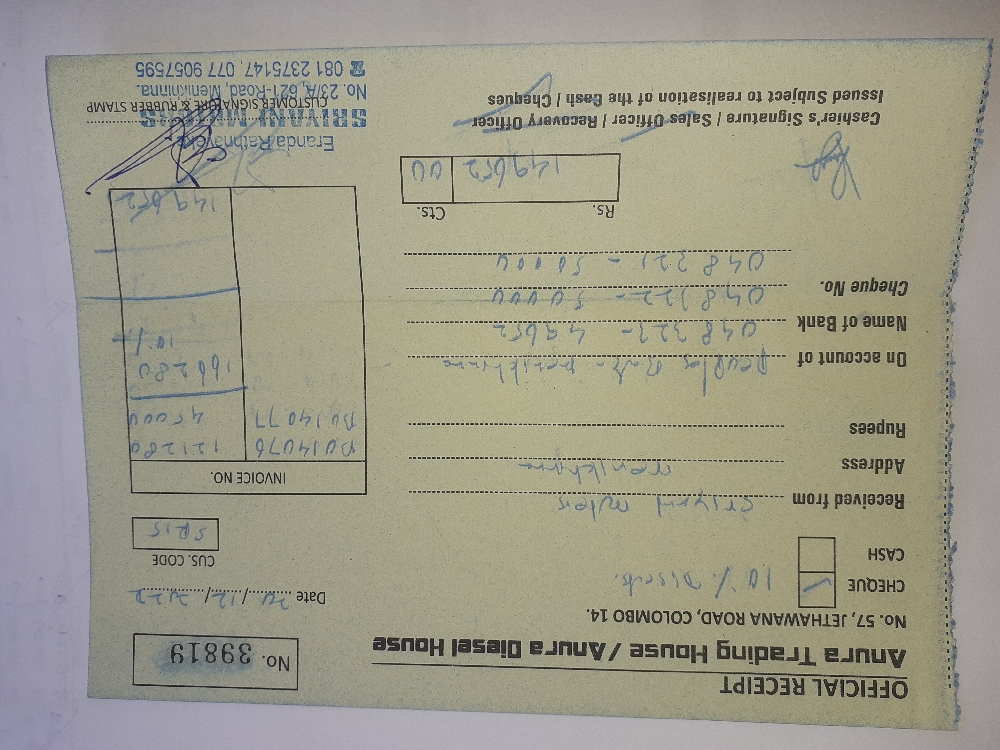 OFFICIAL RECEIPT
Anura Trading House / Anura Diesel House
No. 57, JETHAWANA ROAD, COLOMBO 14.
No. 39819
CHEQUE ✓ 10%
CASH
Date 20/12/2022
CUS. CODE
SR15
Received from
Address
Rupees
On account of
Name of Bank 048323 - 49652
Cheque No. 048322 - 50000
048321 - 50000
INVOICE NO.
D014076 121280
D014077 45000
166280
10%
149652
Rs. Cts.
149652 00
Cashier's Signature / Sales Officer / Recovery Officer
Issued Subject to realisation of the Cash / Cheques
Eranda Rathnayake
SRIYANI MOTORS
CUSTOMER SIGNATURE & RUBBER STAMP
No. 23/A, 621-Road, Menikhinna.
☎ 081 2375147, 077 9057595